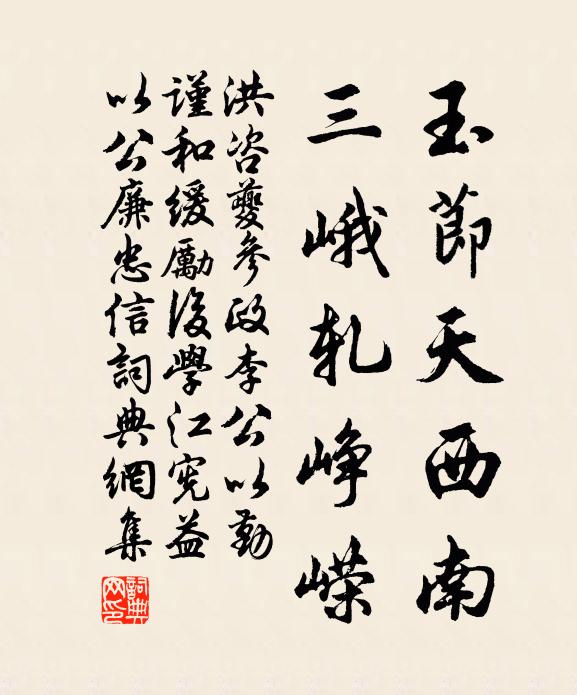 玉節天西南
三峨軋崢嶸
洪咨夔參政李公以勤
謹和緩厲後學江憲益
以公廉忠信詞典網集
詞典网印